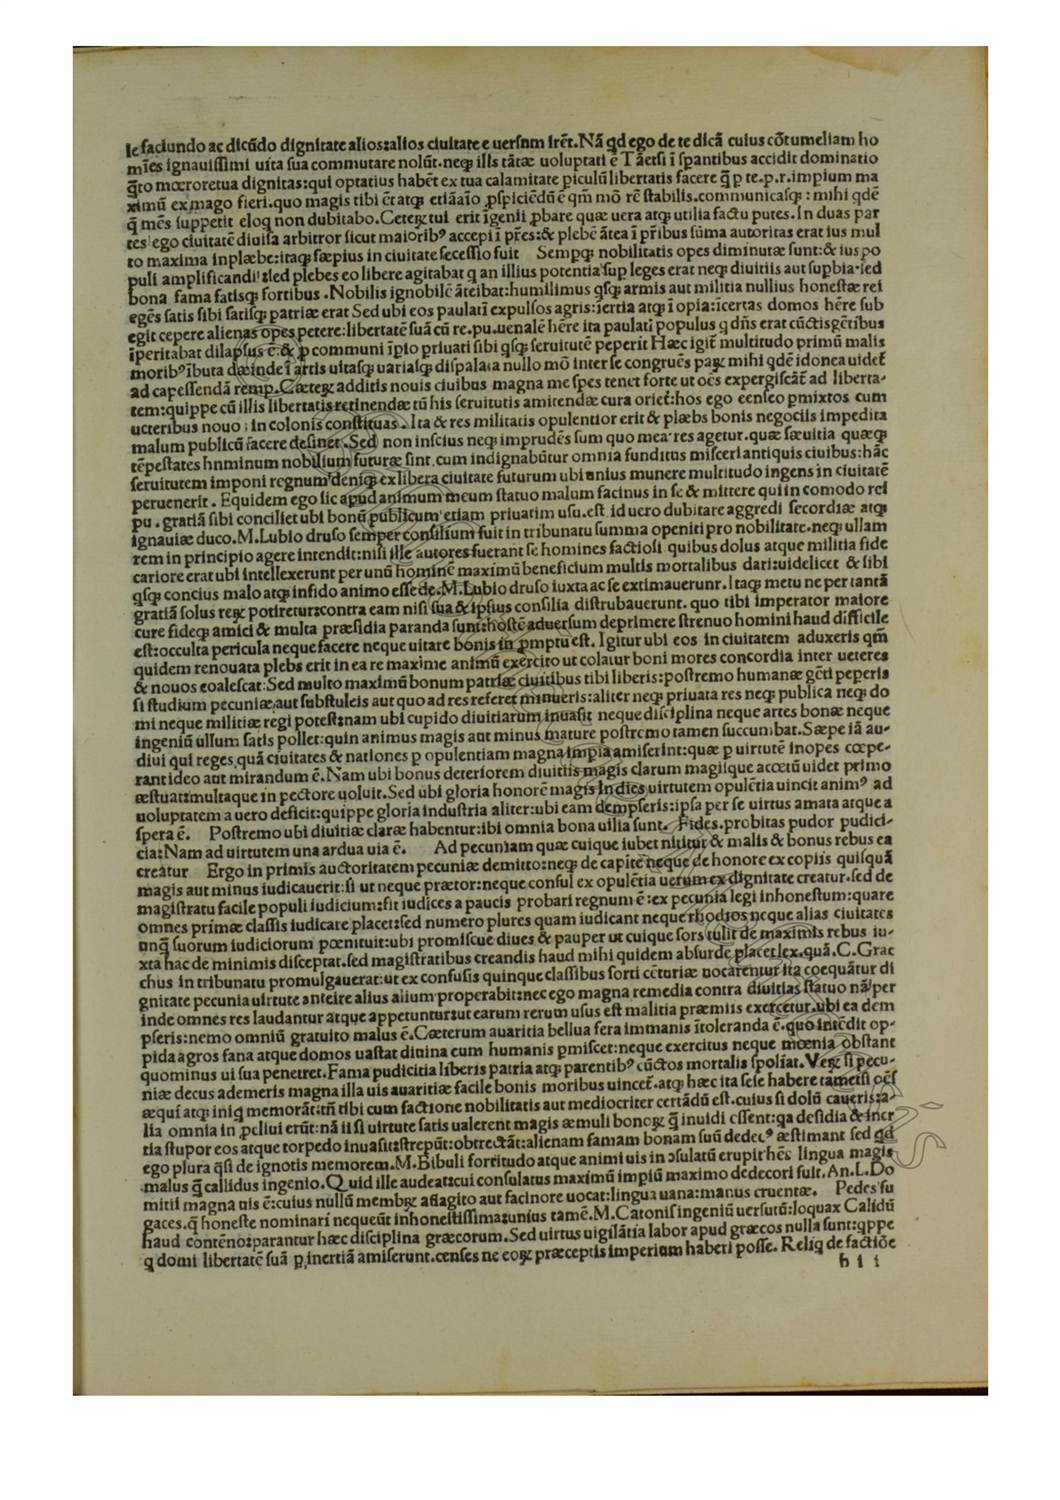 le faciundo ac dicūdo dignitate alios:alios ciuitate e uersum irēt.Nā qd ego de te dicā cuius cōtumeliam ho
mīes ignauissimi uita sua commutare nolūt.neqȝ illis tātæ uoluptati ē Tāetsi ī spantibus accidit dominatio
q̄to mœroretua dignitas:qui optatius habēt ex tua calamitate piculū libertatis facere q̄ p te.p.r.impium ma
ximū ex mago fieri.quo magis tibi ēt atqȝ etiāaīo pspiciēdū ē qm̄ mō rē stabilis.communicasqȝ : mihi qdē
q̄ mēs suppetit eloq non dubitabo.Ceteꝝ tui erit īgenii pbare quæ uera atqȝ utilia factu putes.In duas par
tes ego ciuitatē diuisa arbitror sicut maioribꝰ accepi ī pr̄es:& plebē āteā ī pr̄ibus sūma autoritas erat ius mul
to maxima inplæbe:itaqȝ sæpius in ciuitate secessio fuit Sempqȝ nobilitatis opes diminutæ sunt:& ius po
puli amplificandi:sed plebes eo libere agitabat q an illius potentia sup leges erat neqȝ diuitiis aut supbia.sed
bona fama fatisqȝ fortibus .Nobilis ignobilē āteibat:humilimus qsqȝ armis aut militia nullius honestæ rei
egēs satis sibi satisqȝ patriæ erat Sed ubi eos paulatī expulsos agris:īertia atqȝ īopia:īcertas domos hēre sub
egit cepere alienas opes petere:libertatē suā cū re.pu.uenalē hēre ita paulatī populus q dn̄s erat cūctisgētibus
īperitabat dilapsus ē:& p communi īpio priuati sibi qsqȝ seruitutē peperit Hæc igit̄ multitudo primū malis
moribꝰ ībuta dæinde ī artis uitasqȝ uariasqȝ dispalata nullo mō inter se congruēs paꝝ mihi qdē idonea uidet̄
ad capessendā remp.Cæteꝝ additis nouis ciuibus magna me spes tenet forte ut oēs expergiscāt̄ ad liberta-
tem:quippe cū illis libertatis retinendæ tū his seruitutis amitendæ cura oriet̄:hos ego censeo pmixtos cum
ueteribus nouo : in colonis constituas .Ita & res militatis opulentior erit & plæbs bonis negociis impedita
malum publicū facere desinet .Sed non inscius neqȝ imprudēs sum quo mea res agetur.quæ sæuitia quæqȝ
tēpestates hnminum nobilium futuræ sint.cum indignabūtur omnia funditus misceri antiquis ciuibus:hāc
seruitutem imponi regnum deniqȝ ex libera ciuitate futurum ubi unius munere multitudo ingens in ciuitatē
peruenerit . Equidem ego sic apud animum meum statuo malum facinus in se & mittere qui in comodo rei
pu . gratiā sibi conciliet ubi bonū publicum etiam priuatim usu.est id uero dubitare aggredi secordiæ atqȝ
ignauiæ duco.M.Lubio druso semper consilium fuit in tribunatu summa openiti pro nobilitate.neqȝ ullam
rem in principio agere intendit:nisi ille autores fuerant se homines factiosi quibus dolus atque militia fide
cariore erat ubi intellexerunt per unū hominē maximū beneficium multis mortalibus dari:uidelicet & sibi
qsqȝ concius malo atqȝ infido animo esse de.M.Lubio druso iuxta ac se extimauerunr.Itaqȝ metu ne per tantā
gratiā solus reꝝ potiretur:contra eam nisi sua & ipsius consilia distrubauerunt. quo tibi imperator maiore
cure fideqȝ amici & multa præsidia paranda sunt:hostē aduersum deprimere strenuo homini haud difficile
est:occulta pericula neque facere neque uitare bonis in pmptu est. Igitur ubi eos in ciuitatem aduxeris qm̄
quidem renouata plebs erit in ea re maxime animū exercito ut colatur boni mores concordia inter ueteres
& nouos coalescat:Sed multo maximū bonum patriæ ciuitibus tibi liberis:postremo humanæ gēti peperis
si studium pecuniæ,aut substuleis aut quo ad res referet minueris:aliter neqȝ priuata res neqȝ publica neqȝ do
mi neque militiæ regi potest:nam ubi cupido diuitiarum inuasit neque disciplina neque artes bonæ neque
ingeniū ullum satis pollet:quin animus magis aut minus mature postremo tamen succumbat.Sæpe iā au-
diui qui reges quā ciuitates & nationes p opulentiam magna impia amiserint:quæ p uirtutē inopes cœpe-
rant ideo aut mirandum ē.Nam ubi bonus deteriorem diuitiis magis clarum magisque accētū uidet primo
æstuat:multaque in pectore uoluit.Sed ubi gloria honorē magis in dies uirtutem opulētia uincit animꝰ ad
uoluptatem a uero deficit:quippe gloria industria aliter:ubi eam dempseris:ipsa per se uirtus amata atque a
spera ē. Postremo ubi diuitiæ claræ habentur:ibi omnia bona uilia sunt. Fides.probitas pudor pudici-
cia:Nam ad uirtutem una ardua uia ē. Ad pecuniam quæ cuique iubet nititur & malis & bonus rebus ea
creātur Ergo in primis auctoritatem pecuniæ demitto:neqȝ de capite neque de honore ex copiis quisquā
magis aut minus iudicauerit:si ut neque prætor:neque consul ex opulētia uerum ex dignitate creatur.sed de
magistratu facile populi iudicium:fit iudices a paucis probari regnum ē:ex pecunia legi inhonestum:quare
omnes primæ classis iudicare placet:sed numero plures quam iudicant neque rhodios neque alias ciuitates
unq̄ suorum iudiciorum pœnituit:ubi promiscue diues & pauper ut cuique fors tulit de maximis rebus iu-
xta hac de minimis disceptat.sed magistratibus creandis haud mihi quidem absurde placet lex.quā.C.Grac
chus in tribunatu promulgauerat:ut ex confusis quinque classibus sorti cēturiæ uocarentur ita coequātur di
gnitate pecunia uirtute anteire alius alium properabit:nec ego magna remedia contra diuitias statuo nā per
inde omnes res laudantur atque appetuntur:ut earum rerum usus est malitia præmiis exercetur.ubi ea dem
pseris:nemo omniū gratuito malus ē.Cæterum auaritia bellua fera immanis ītoleranda ē.quo intēdit op-
pida agros fana atque domos uastat diuina cum humanis pmiscet:neque exercitus neque mœnia obstant
quominus ui sua penetret.Fama pudicitia liberis patria atqȝ parentibꝰ cūctos mortalis spoliat.Veꝝ si pecu-
niæ decus ademeris magna illa uis auaritiæ facile bonis moribus uincet̄.atqȝ hæc ita sese habere tametsi oēs
æqui atqȝ iniq memorāt:tn̄ tibi cum factione nobilitatis aut mediocriter certādū est.cuius si dolū caueris:a-
lia omnia in pcliui erūt:nā ii si uirtute satis ualerent magis æmuli bonoꝝ q̄ inuidi essent:qa desidia & iner
tia stupor eos atque torpedo inuasit:strepūt:obtrectāt:alienam famam bonam suū dedecꝰ æstimant sed qd
ego plura q̄si de ignotis memorem.M.Bibuli fortitudo atque animi uis in ɔsulatū erupit hēs lingua magis
malus q̄ callidus ingenio.Quid ille audeat:cui consulatus maximū impiū maximo dedecori fuit.An.L.Do
mitii magna uis ē:cuius nullū membꝝ aflagito aut facinore uocat:lingua uana:manus cruentæ. Pedes fu
gaces.q̄ honeste nominari nequeūt inhonestissima:unius tamē.M.Catonis ingeniū uersutū:loquax Calidū
haud contēno:parantur hæc disciplina græcorum.Sed uirtus uigilātia labor apud græcos nulla sunt:qppe
q domi libertatē suā p inertiā amiserunt.censes ne eoꝝ præceptis imperium haberi posse.Reliq de factiōe
h i i